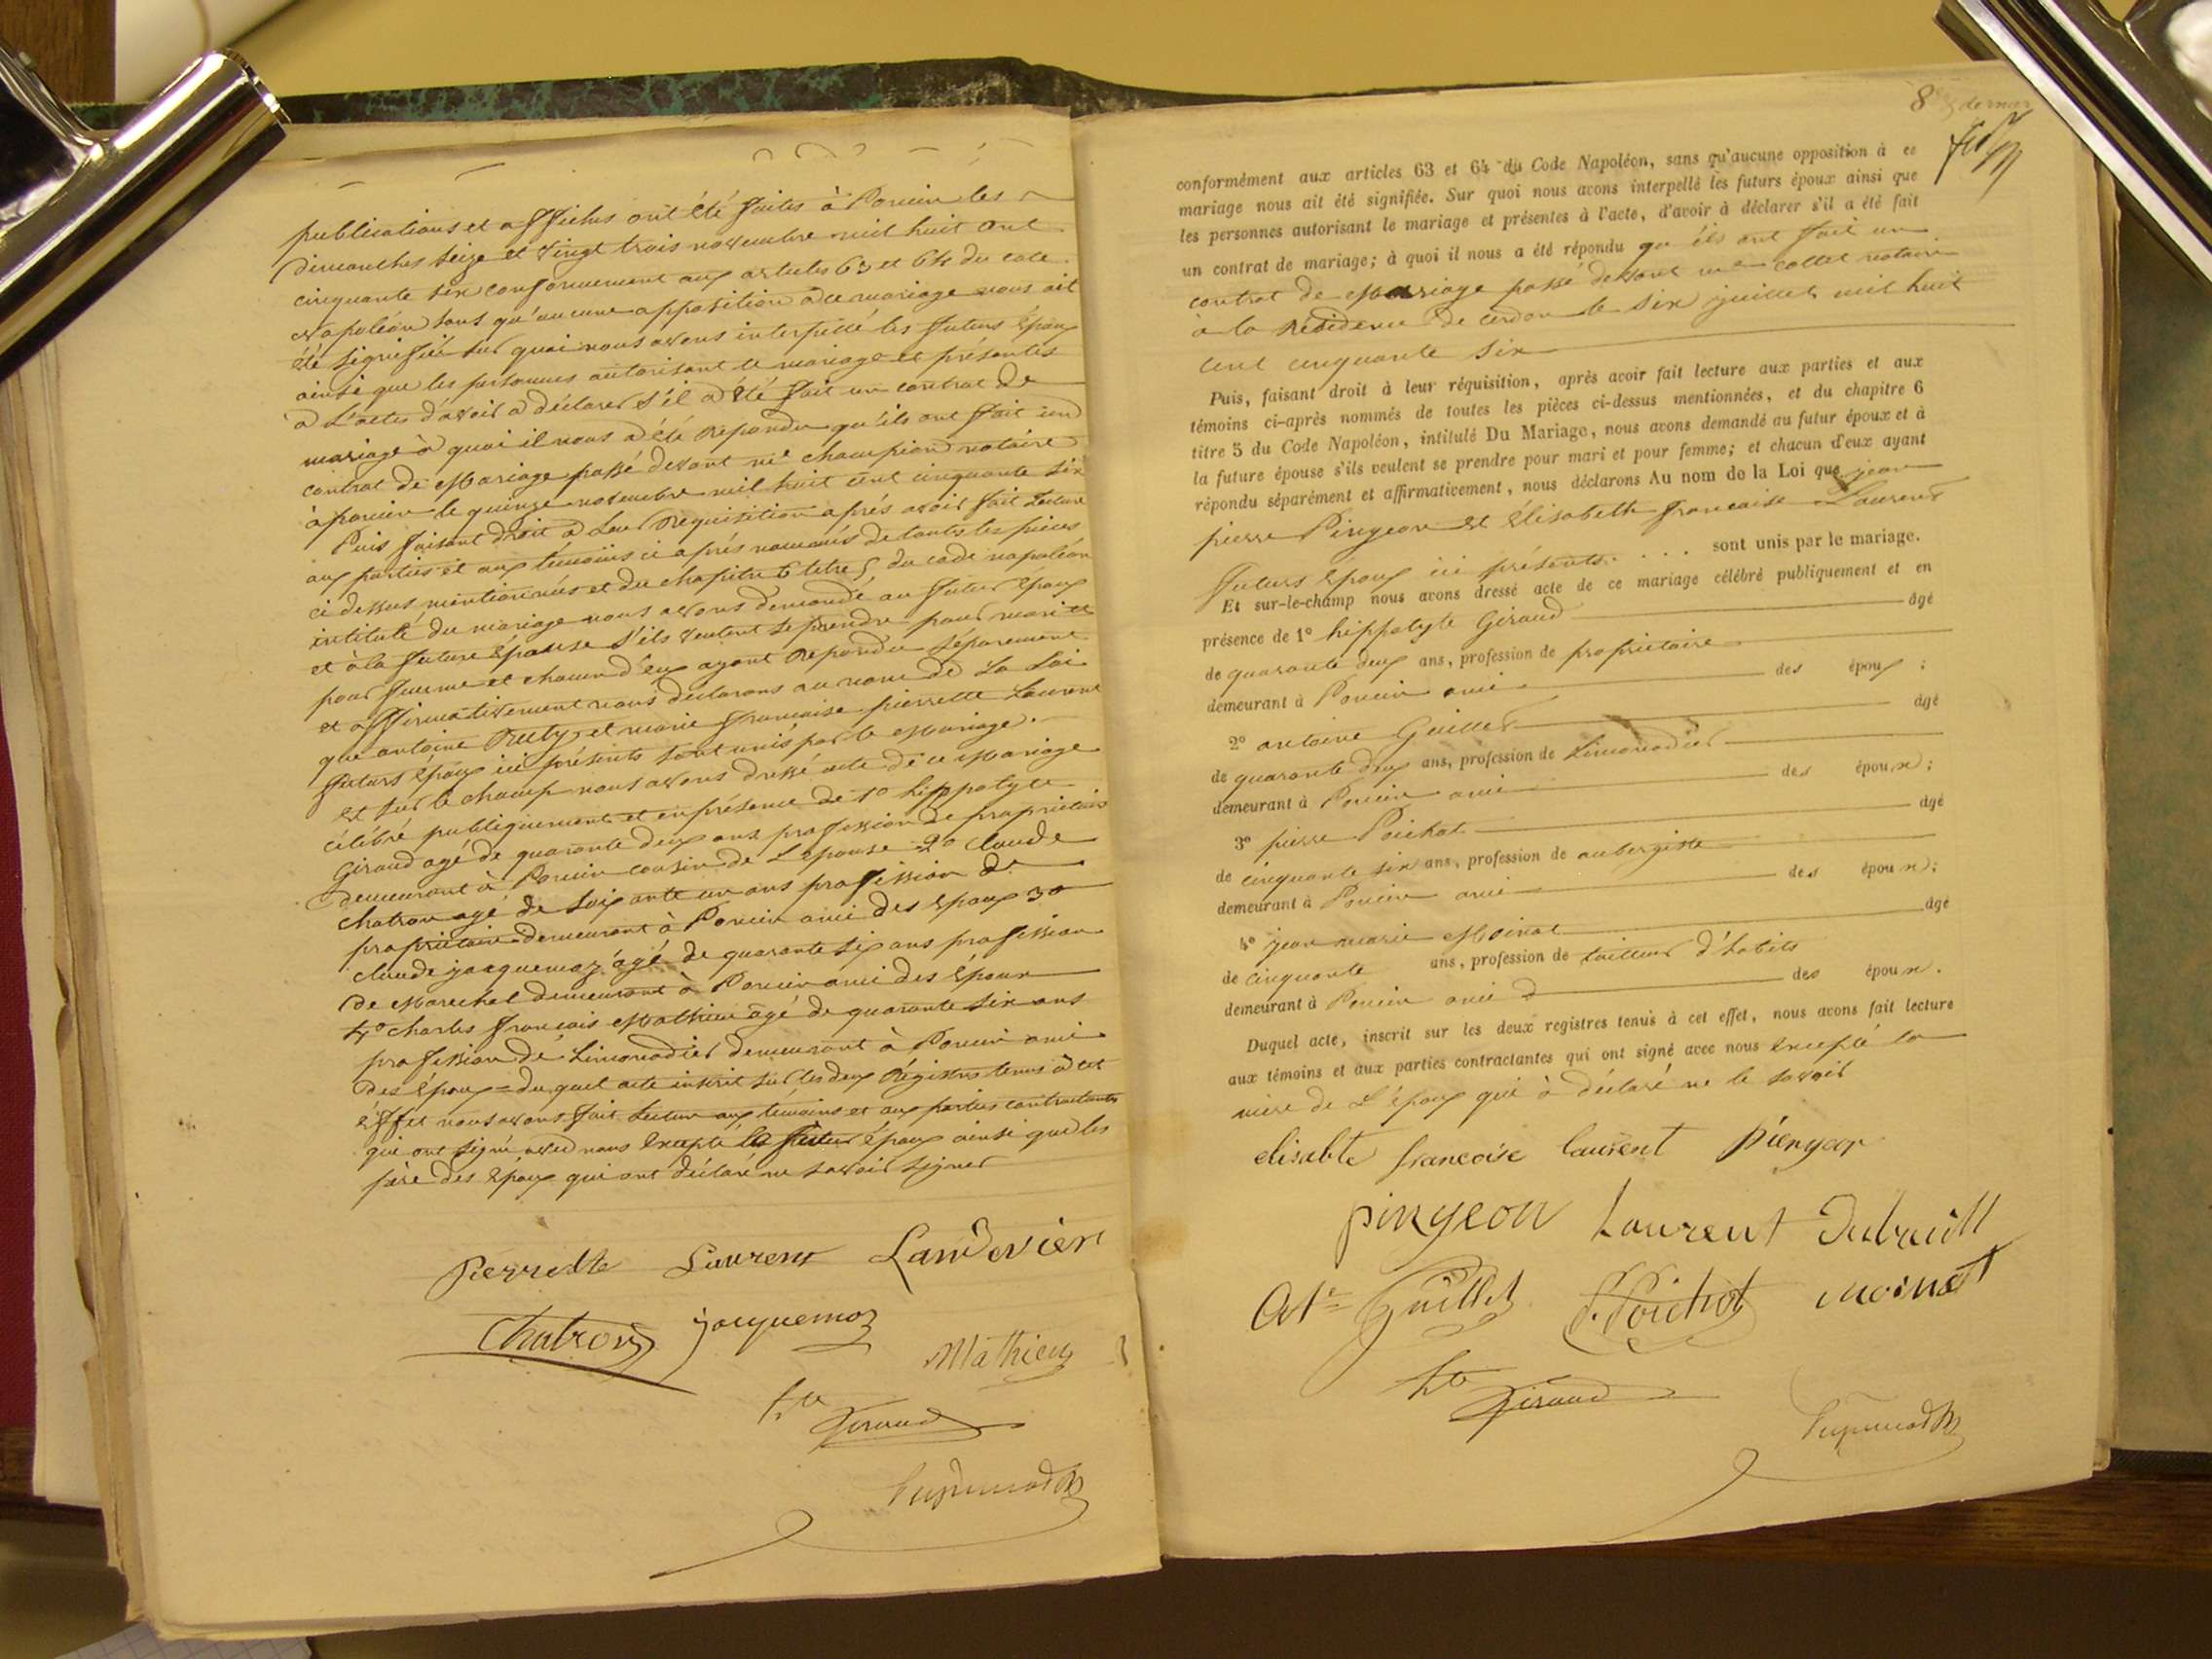 publications et affiches ont été faites à Poncin les
dimanches seize et vingt trois novembre mil huit cent
cinquante six conformement aux articles 63 et 64 du code
napoléon sans qu'aucune opposition à ce mariage nous ait
été signifiée sur quoi nous avons interpellé les futurs époux
ainsi que les personnes autorisant le mariage et présentes
à L'acte d'avoir à déclarer s'il a été fait un contrat de
mariage à quoi il nous a été repondu qu'ils ont fait un
contrat de Mariage passé devant me champion notaire
à poncin le quinze novembre mil huit cent cinquante six
Puis faisant droit à Leur requisition aprés avoir fait Lecture
aux parties et aux témoins ci aprés nommés de toutes les pieces
ci dessus mentionnées et du chapitre 6 titre 5 du code napoléon
intitulé du mariage nous avons demandé au futur époux
et à la future épouse s'ils veulent se prendre pour mari et
pour femme et chacun d'eux ayant repondu séparement
et affirmativement nous déclarons au nom de La Loi
que antoine Ruty et marie francaise pierrette Laurent
futurs époux ici présents sont unis par le Mariage.
et sur le champ nous avons dressé acte de ce Mariage
célébré publiquement et en présence de 1o hippolyte
Giraud agé de quarante deux ans profession de propriétaire
demeurant à Poncin cousin de L'epouse 2o claude
chatron agé de soixante un ans profession de
propriétaire demeurant à Poncin ami des époux 3o
claude jacquemoz agé de quarante six ans profession
de Marechal demeurant à Poncin ami des époux
4o charles francais Mathieu âgé de quarante six ans
profession de Limonadier demeurant à Poncin ami
des époux = duquel acte inscrit sur les deux Régistres tenus à cet
éffet nous avons fait Lecture aux témoins et aux parties contractantes
qui ont signé avec nous excepté le futur époux ainsi que les
père des époux qui ont déclaré ne savoir signer
Pierrette Laurent
Chatron jacquemoz
Mathieu
hte Giraud
8
conformément aux articles 63 et 64 du Code Napoléon, sans qu'aucune opposition à ce
mariage nous ait été signifiée. Sur quoi nous avons interpellé les futurs époux ainsi que
les personnes autorisant le mariage et présentes à l'acte, d'avoir à déclarer s'il a été fait
un contrat de mariage; à quoi il nous a été répondu qu'ils ont fait un
contrat de Mariage passé devant me collet notaire
à la Résidence de cerdon le six juillet mil huit
cent cinquante six
Puis, faisant droit à leur réquisition, après avoir fait lecture aux parties et aux
témoins ci-après nommés de toutes les pièces ci-dessus mentionnées, et du chapitre 6
titre 5 du Code Napoléon, intitulé Du Mariage, nous avons demandé au futur époux et à
la future épouse s'ils veulent se prendre pour mari et pour femme; et chacun d'eux ayant
répondu séparément et affirmativement, nous déclarons Au nom de la Loi que jean
pierre Pingeon et Elisabeth francaise Laurent
futurs époux ici présents. . . . sont unis par le mariage.
Et sur-le-champ nous avons dressé acte de ce mariage célébré publiquement et en
présence de 1° hippolyte Giraud âgé
de quarante deux ans, profession de propriétaire
demeurant à Poncin ami des époux ;
2° antoine Guillet âgé
de quarante deux ans, profession de Limonadier
demeurant à Poncin ami des époux ;
3° pierre Poichot âgé
de cinquante six ans, profession de aubergiste
demeurant à Poncin ami des époux ;
4° jean marie Moinat âgé
de cinquante ans, profession de tailleur d'habits
demeurant à Poncin ami des époux .
Duquel acte, inscrit sur les deux registres tenus à cet effet, nous avons fait lecture
aux témoins et aux parties contractantes qui ont signé avec nous Excepté la
mère de L'époux qui à déclaré ne le savoir
elisabte francoise laurent piengeon
pingeon Laurent Dubreuill
Ate Guillet P. Poichot moinat
hte Giraud